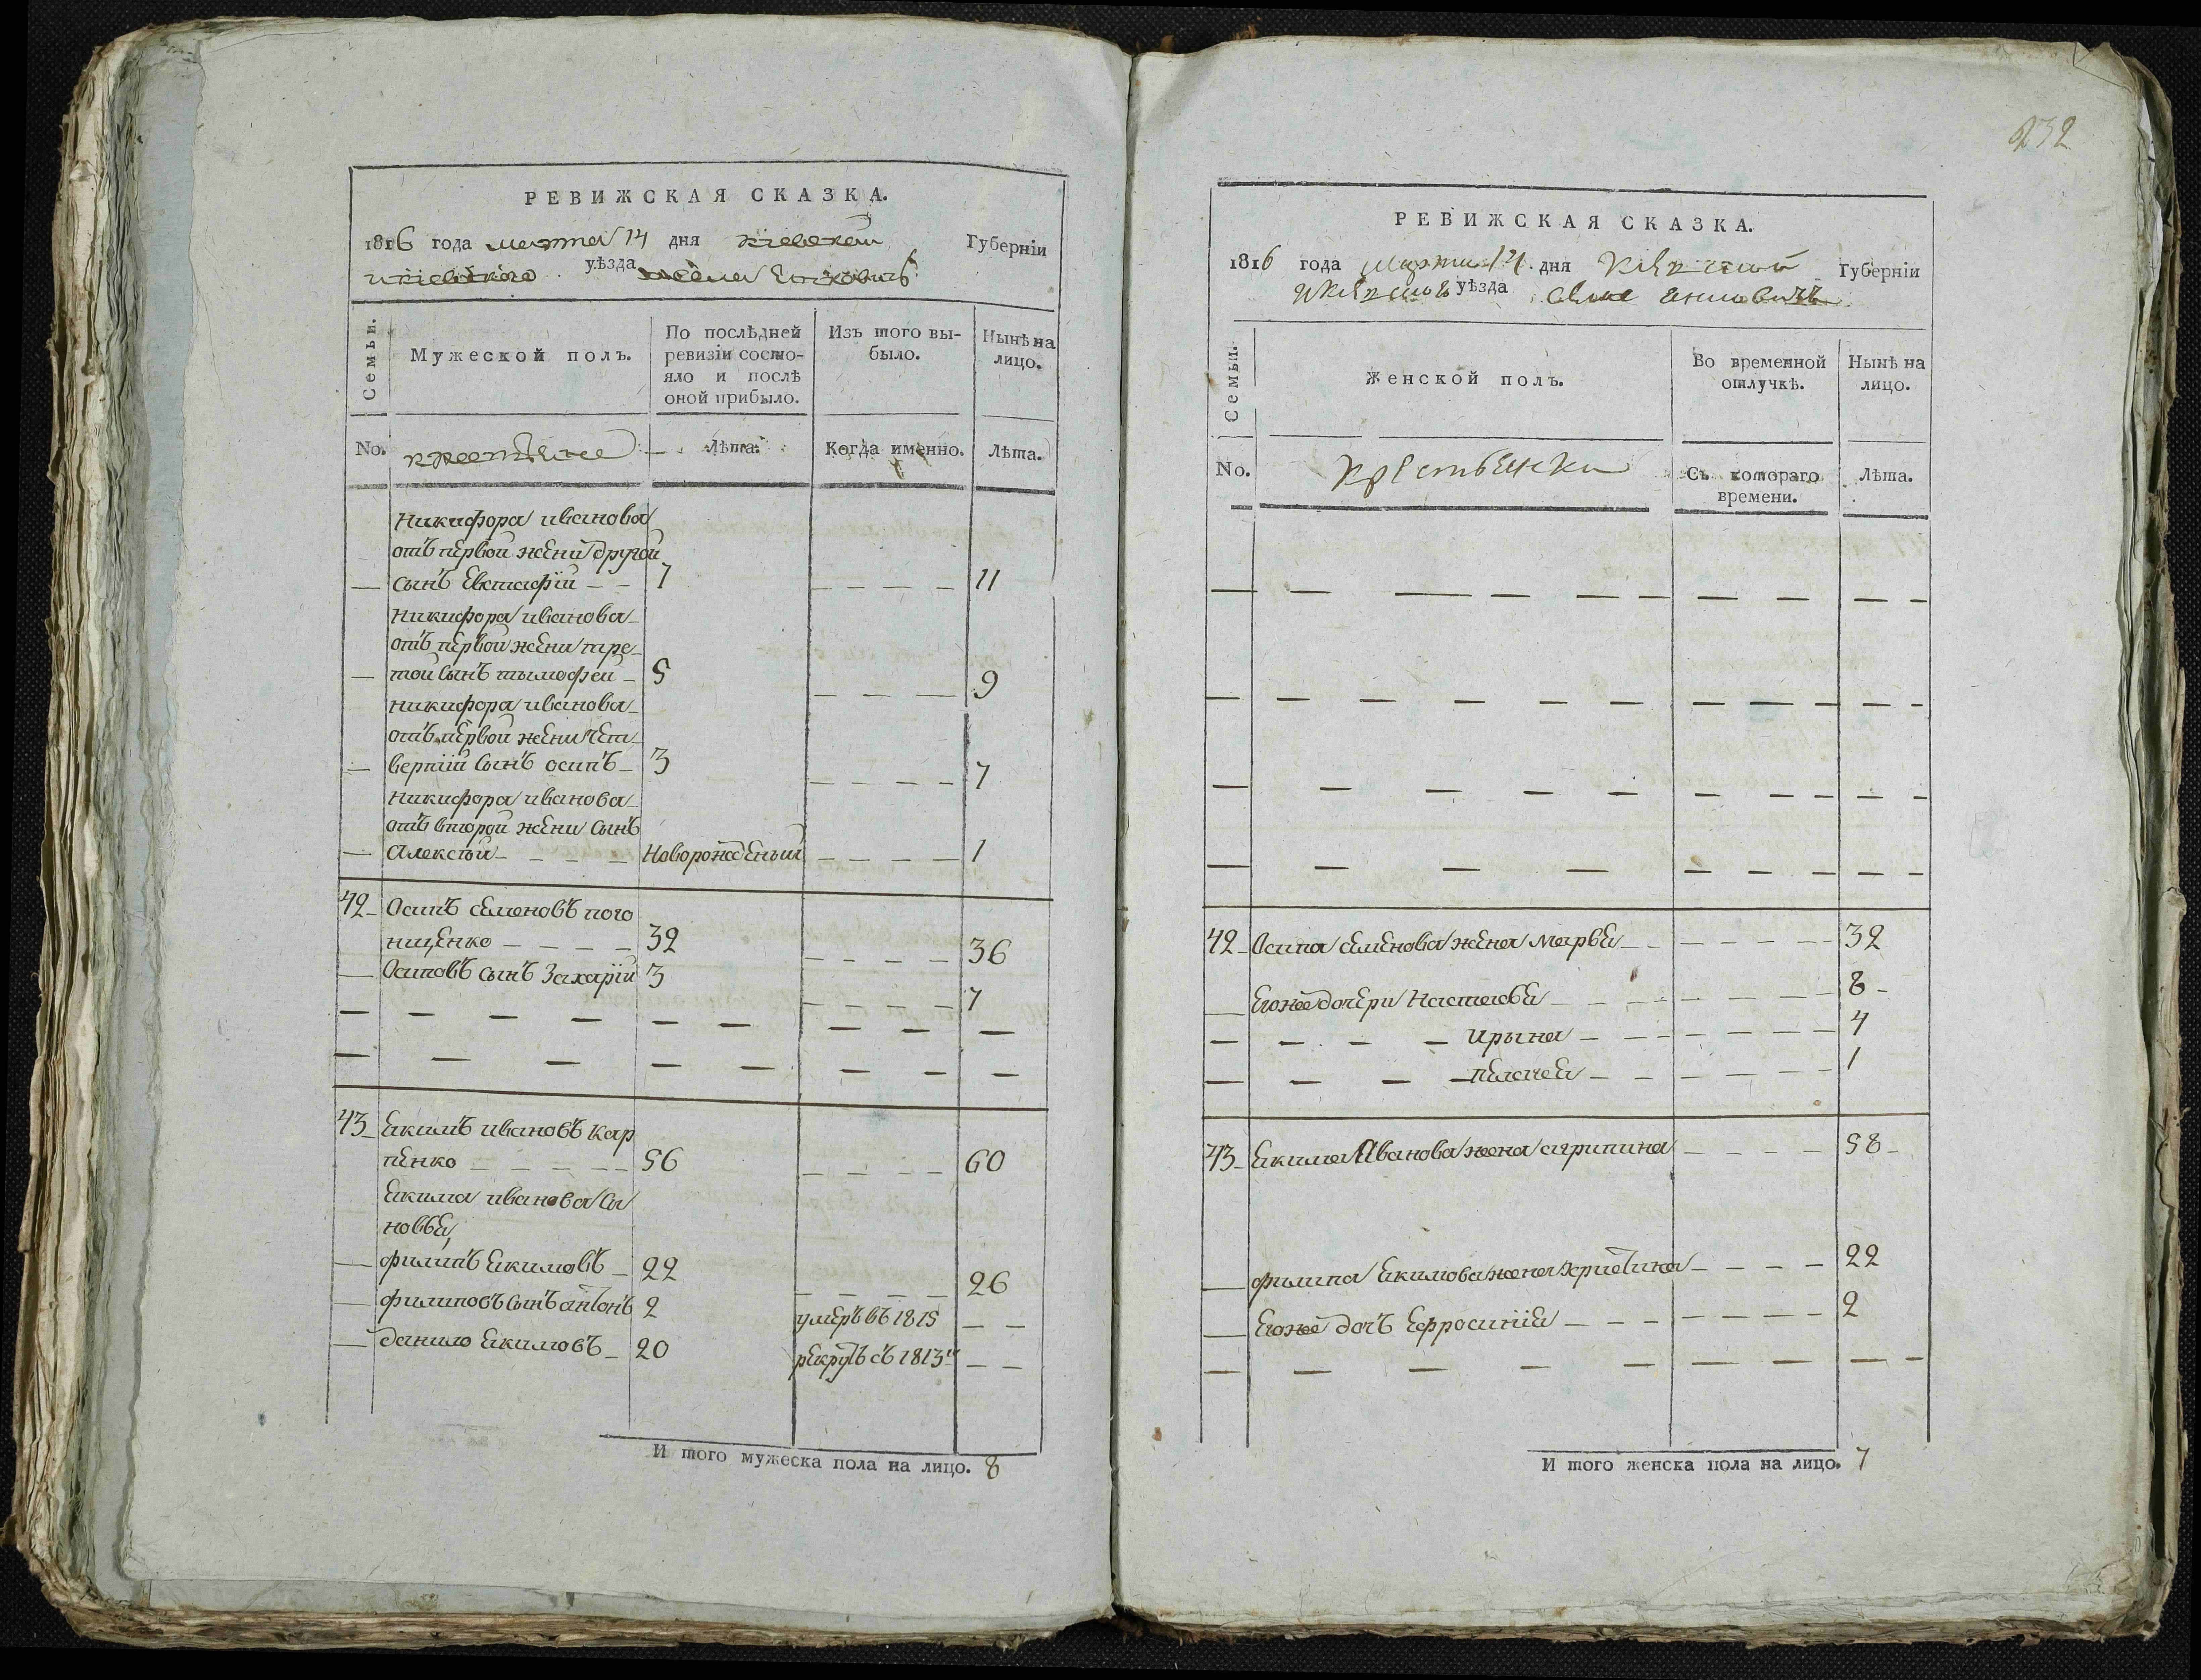 РЕВИЖСКАЯ СКАЗКА.
1816 года марта 14 дня киевской Губерніи
и киевского уѣзда села
Семьи.
Мужеской полъ.
По послѣдней ревизіи состо-
яло и послѣ оной прибыло.
Изъ того вы-
было.
Нынѣ на лицо.
No. крестьяне Лѣта. Когда именно. Лѣта.
Никифора иванова
отъ первой жени другой
— сынъ Евстафій — — 7 — — — — 11
Никифора иванова
отъ первой жени тре-
— той сынъ тымофей — 5 — — — 9
Никифора иванова
отъ первой жени чет-
— вертій сынъ осипъ — 3 — — — — 7
Никифора иванова
отъ второй жени сынъ
— Алексѣй — — — — Новорожденый — — — — 1
42 Осипъ семеновъ пого
нищенко — — — — 32 — — — — 36
— Осиповъ сынъ Захарій 3 — — — — 7
43 Екимъ ивановъ кар
пенко — — — — — 56 — — — — 60
Екима иванова си
новья,
— филипъ Екимовъ — 22 — — — — 26
— филиповъ сынъ антонъ 2 умеръ въ 1815 — —
— данило Екимовъ — 20 рекрутъ съ 1813го — —
И того мужеска пола на лицо. 8
232
РЕВИЖСКАЯ СКАЗКА.
1816 года марта 14 дня Киевской Губерніи
и Киевского уѣзда села
Семьи.
Женской полъ.
Во временной отлучкѣ.
Нынѣ на лицо.
No. крестьянки Съ котораго времени. Лѣта.
42 Осипа семенова жена марья — — — — — — 32
— Егоже дочери Настасья — — — — — — 8
— — — — ирына — — — — — — 4
— — — — пелагея — — — — — — 1
43 Екима Иванова жена агрипина — — — — 58
— филипа Екимова жена христина — — — — 22
— Егоже дочъ Ефросинія — — — — — — 2
И того женска пола на лицо. 7